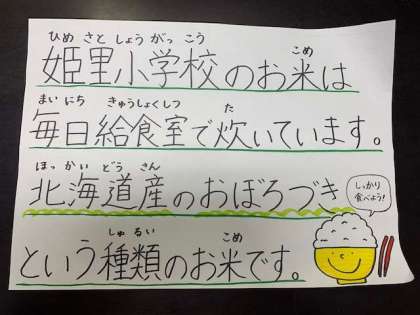 ひめ さと しょう がっ こう こめ
姫里小学校のお米は
まい にち きゅうしょくしつ た
毎日給食室で炊いています。
ほっ かい どう さん
北海道産のおぼろづき
しっかり
食べよう!
しゅ るい こめ
という種類のお米です。